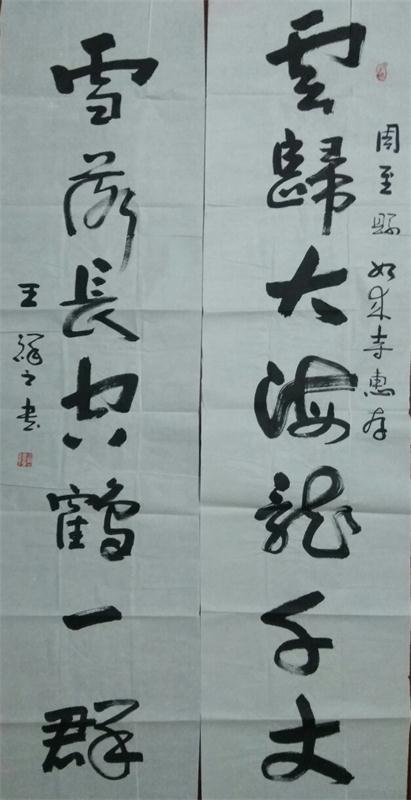 周至縣如来寺惠存
雲歸大海龍千丈
雪落長空鶴一群
王之书